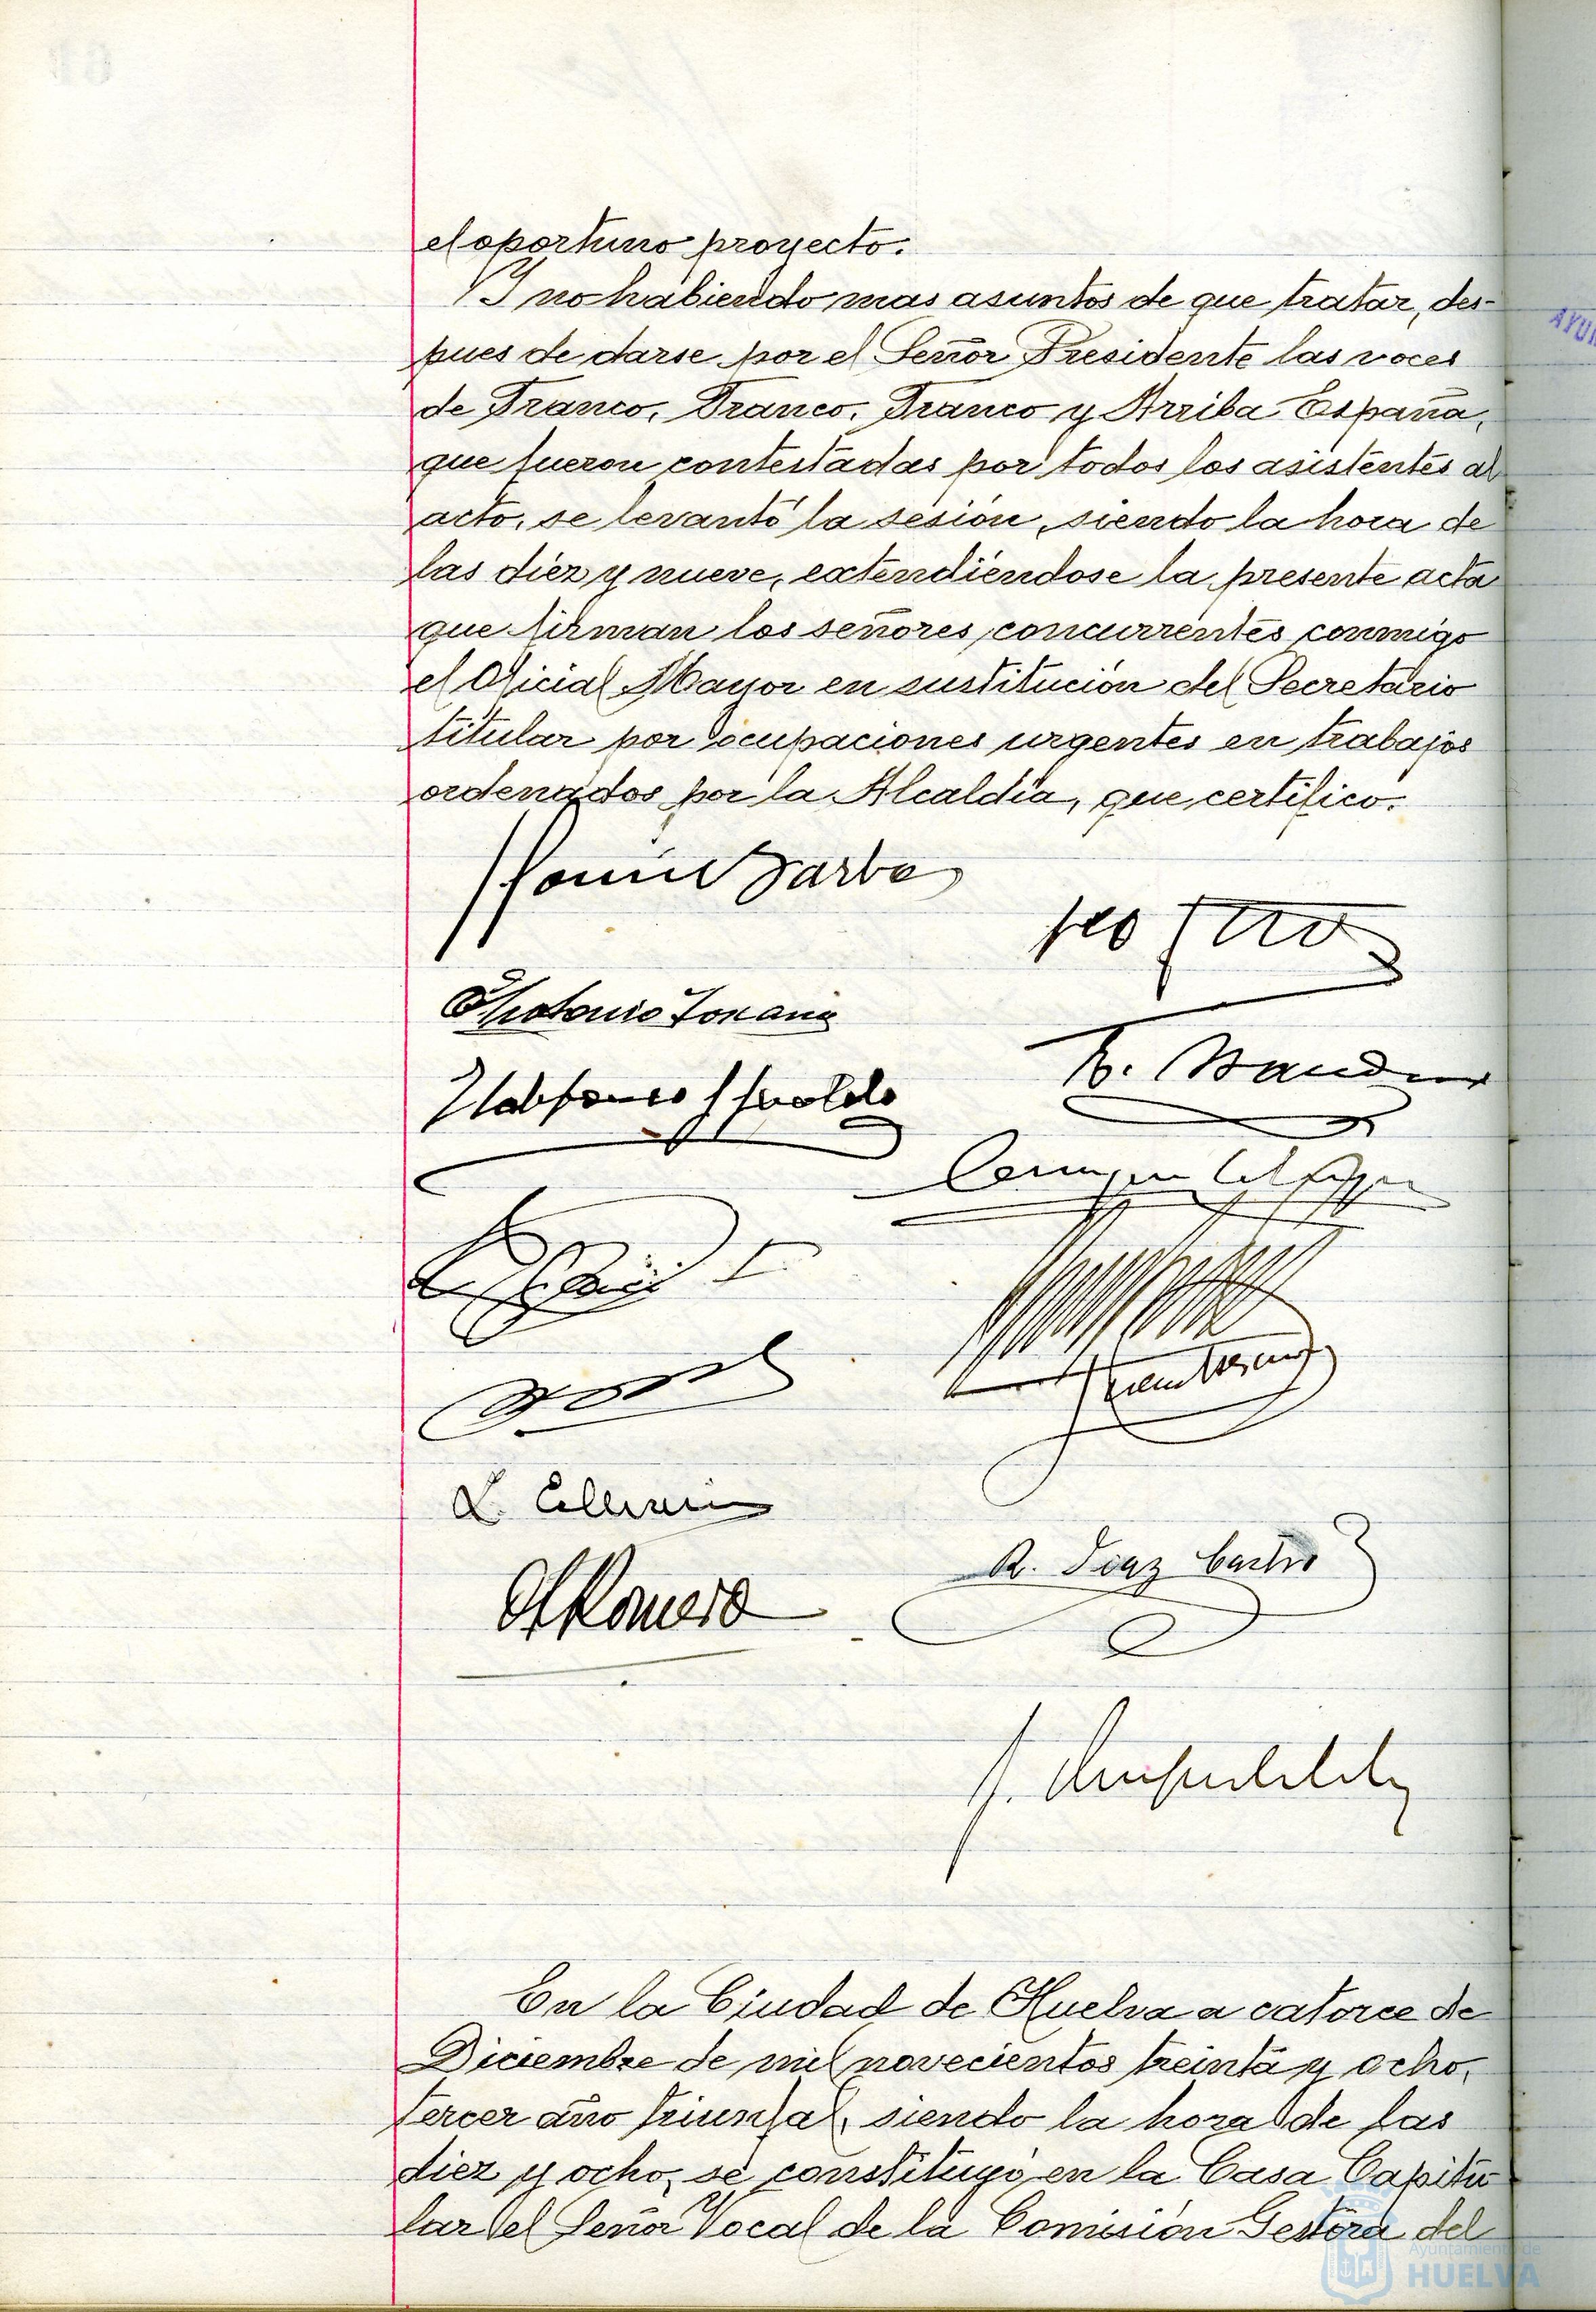 el oportuno proyecto.
Y no habiendo mas asuntos de que tratar, des-
pues de darse por el Señor Presidente las voces
de Franco, Franco, Franco y Arriba España,
que fueron contestadas por todos los asistentes al
acto, se levantó la sesión, siendo la hora de
las diez y nueve, extendiéndose la presente acta
que firman los señores concurrentes conmigo
el Oficial Mayor en sustitución del Secretario
titular por ocupaciones urgentes en trabajos
ordenados por la Alcaldía, que certifico.
Barba
R. Diaz Castro
Romero
En la Ciudad de Huelva a catorce de
Diciembre de mil novecientos treinta y ocho,
tercer año triunfal, siendo la hora de las
diez y ocho, se constituyó en la Casa Capitu
lar el Señor Vocal de la Comisión Gestora del
Ayuntamiento de
HUELVA